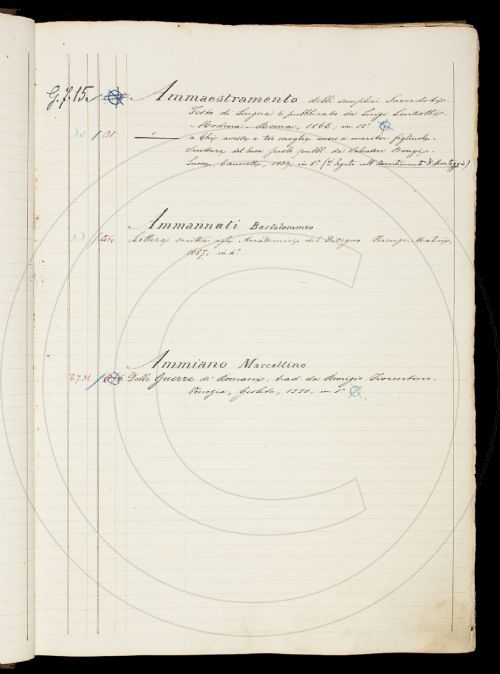 G.7.15. Ammaestramento delli semplici Sacerdoti.
Testo di lingua pubblicato da Luigi
Modena - Roma, 1866, in 16°
a chi avesse a tor moglie ovvero a maritar figliuole.
Scrittura del buon secolo pubbl. da Salvatore Bongi.
Lucca, Canovetti, 1859, in 8°
Ammannati Bartolommeo
Lettera scritta agli Accademici del Disegno. Firenze,
1687. in 4°
Ammiano Marcellino
Delle Guerre de Romani, trad. da Remigio Fiorentino.
Venezia, Giolito, 1550, in 8°